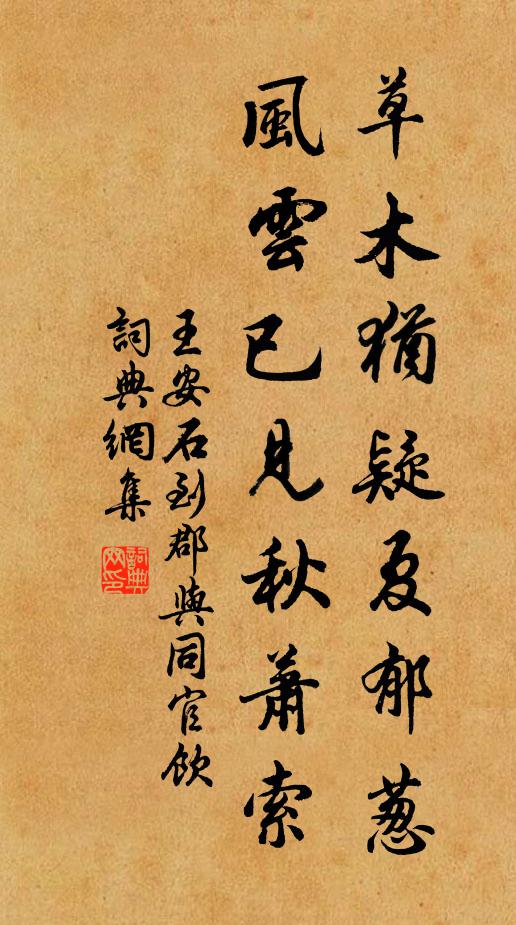 草木猶疑夏郁葱
風雲已見秋蕭索
王安石到郡與同官飲
詞典網集
詞典網印